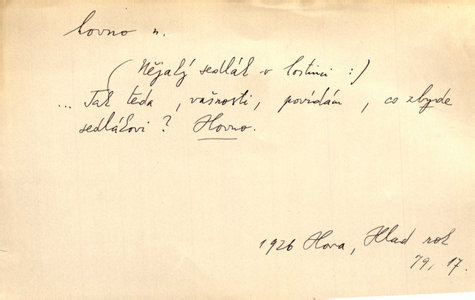 hovno n.
(Nějaký sedlák v hostinci :)
... Tak teda, vašnosti, povídám, co zbyde
sedlákovi? Hovno.
1926 Hora, Hlad rok
79, 17.